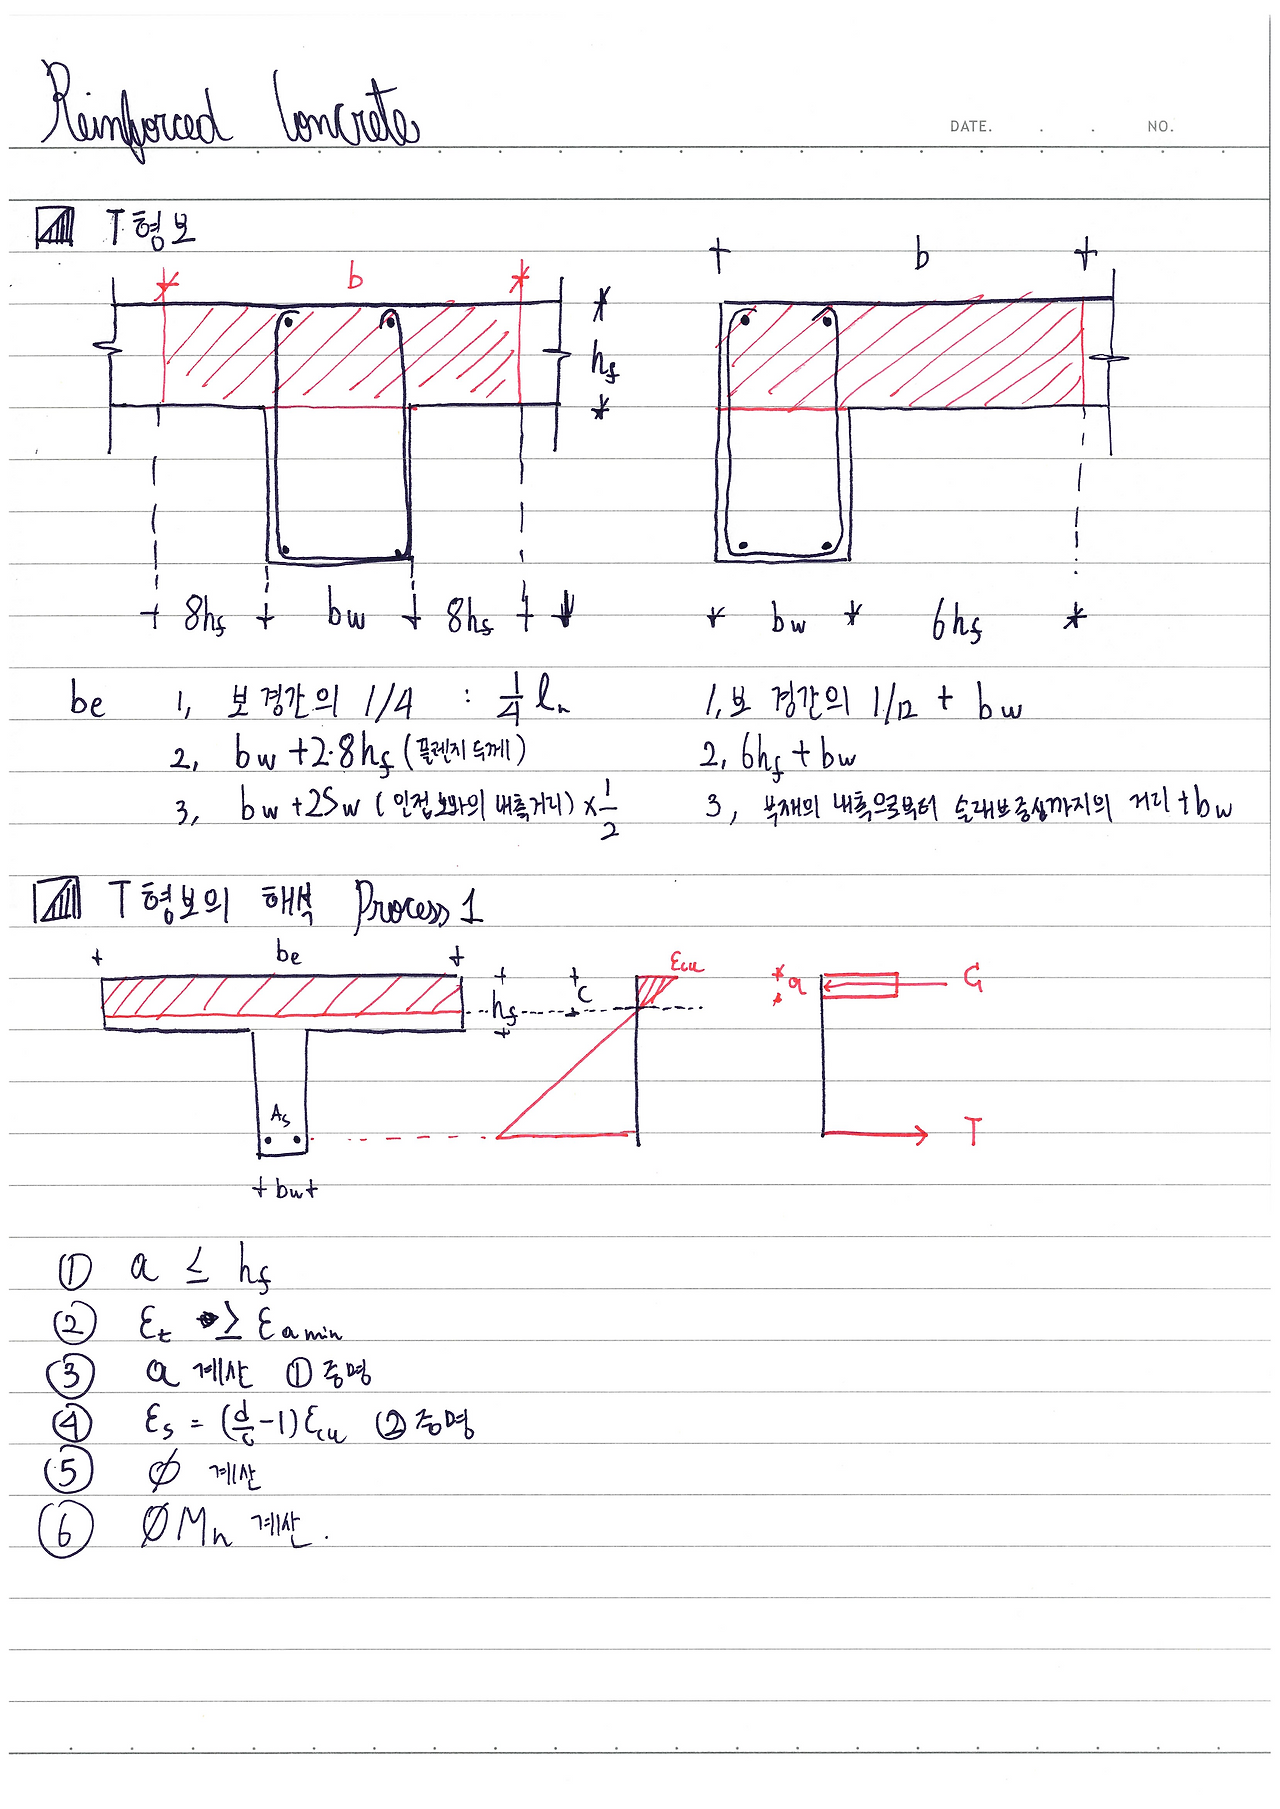 Reinforced Concrete
DATE. . . NO.
T형보
b
b
hf
8hf bw 8hf
bw 6hf
be 1, 보 경간의 1/4 : 1/4 ln
2, bw + 2·8hf (플렌지 두께)
3, bw + 2Sw (인접보와의 내측거리) × 1/2
1, 보 경간의 1/12 + bw
2, 6hf + bw
3, 부재의 내측으로부터 슬래브중심까지의 거리 + bw
T형보의 해석 Process 1
be
hf
c
εcu
a
As
T
bw
① a ≤ hf
② εt ≥ εa min
③ a 계산 ① 증명
④ εs = (d/c - 1) εcu ② 증명
⑤ ø 계산
⑥ øMn 계산.